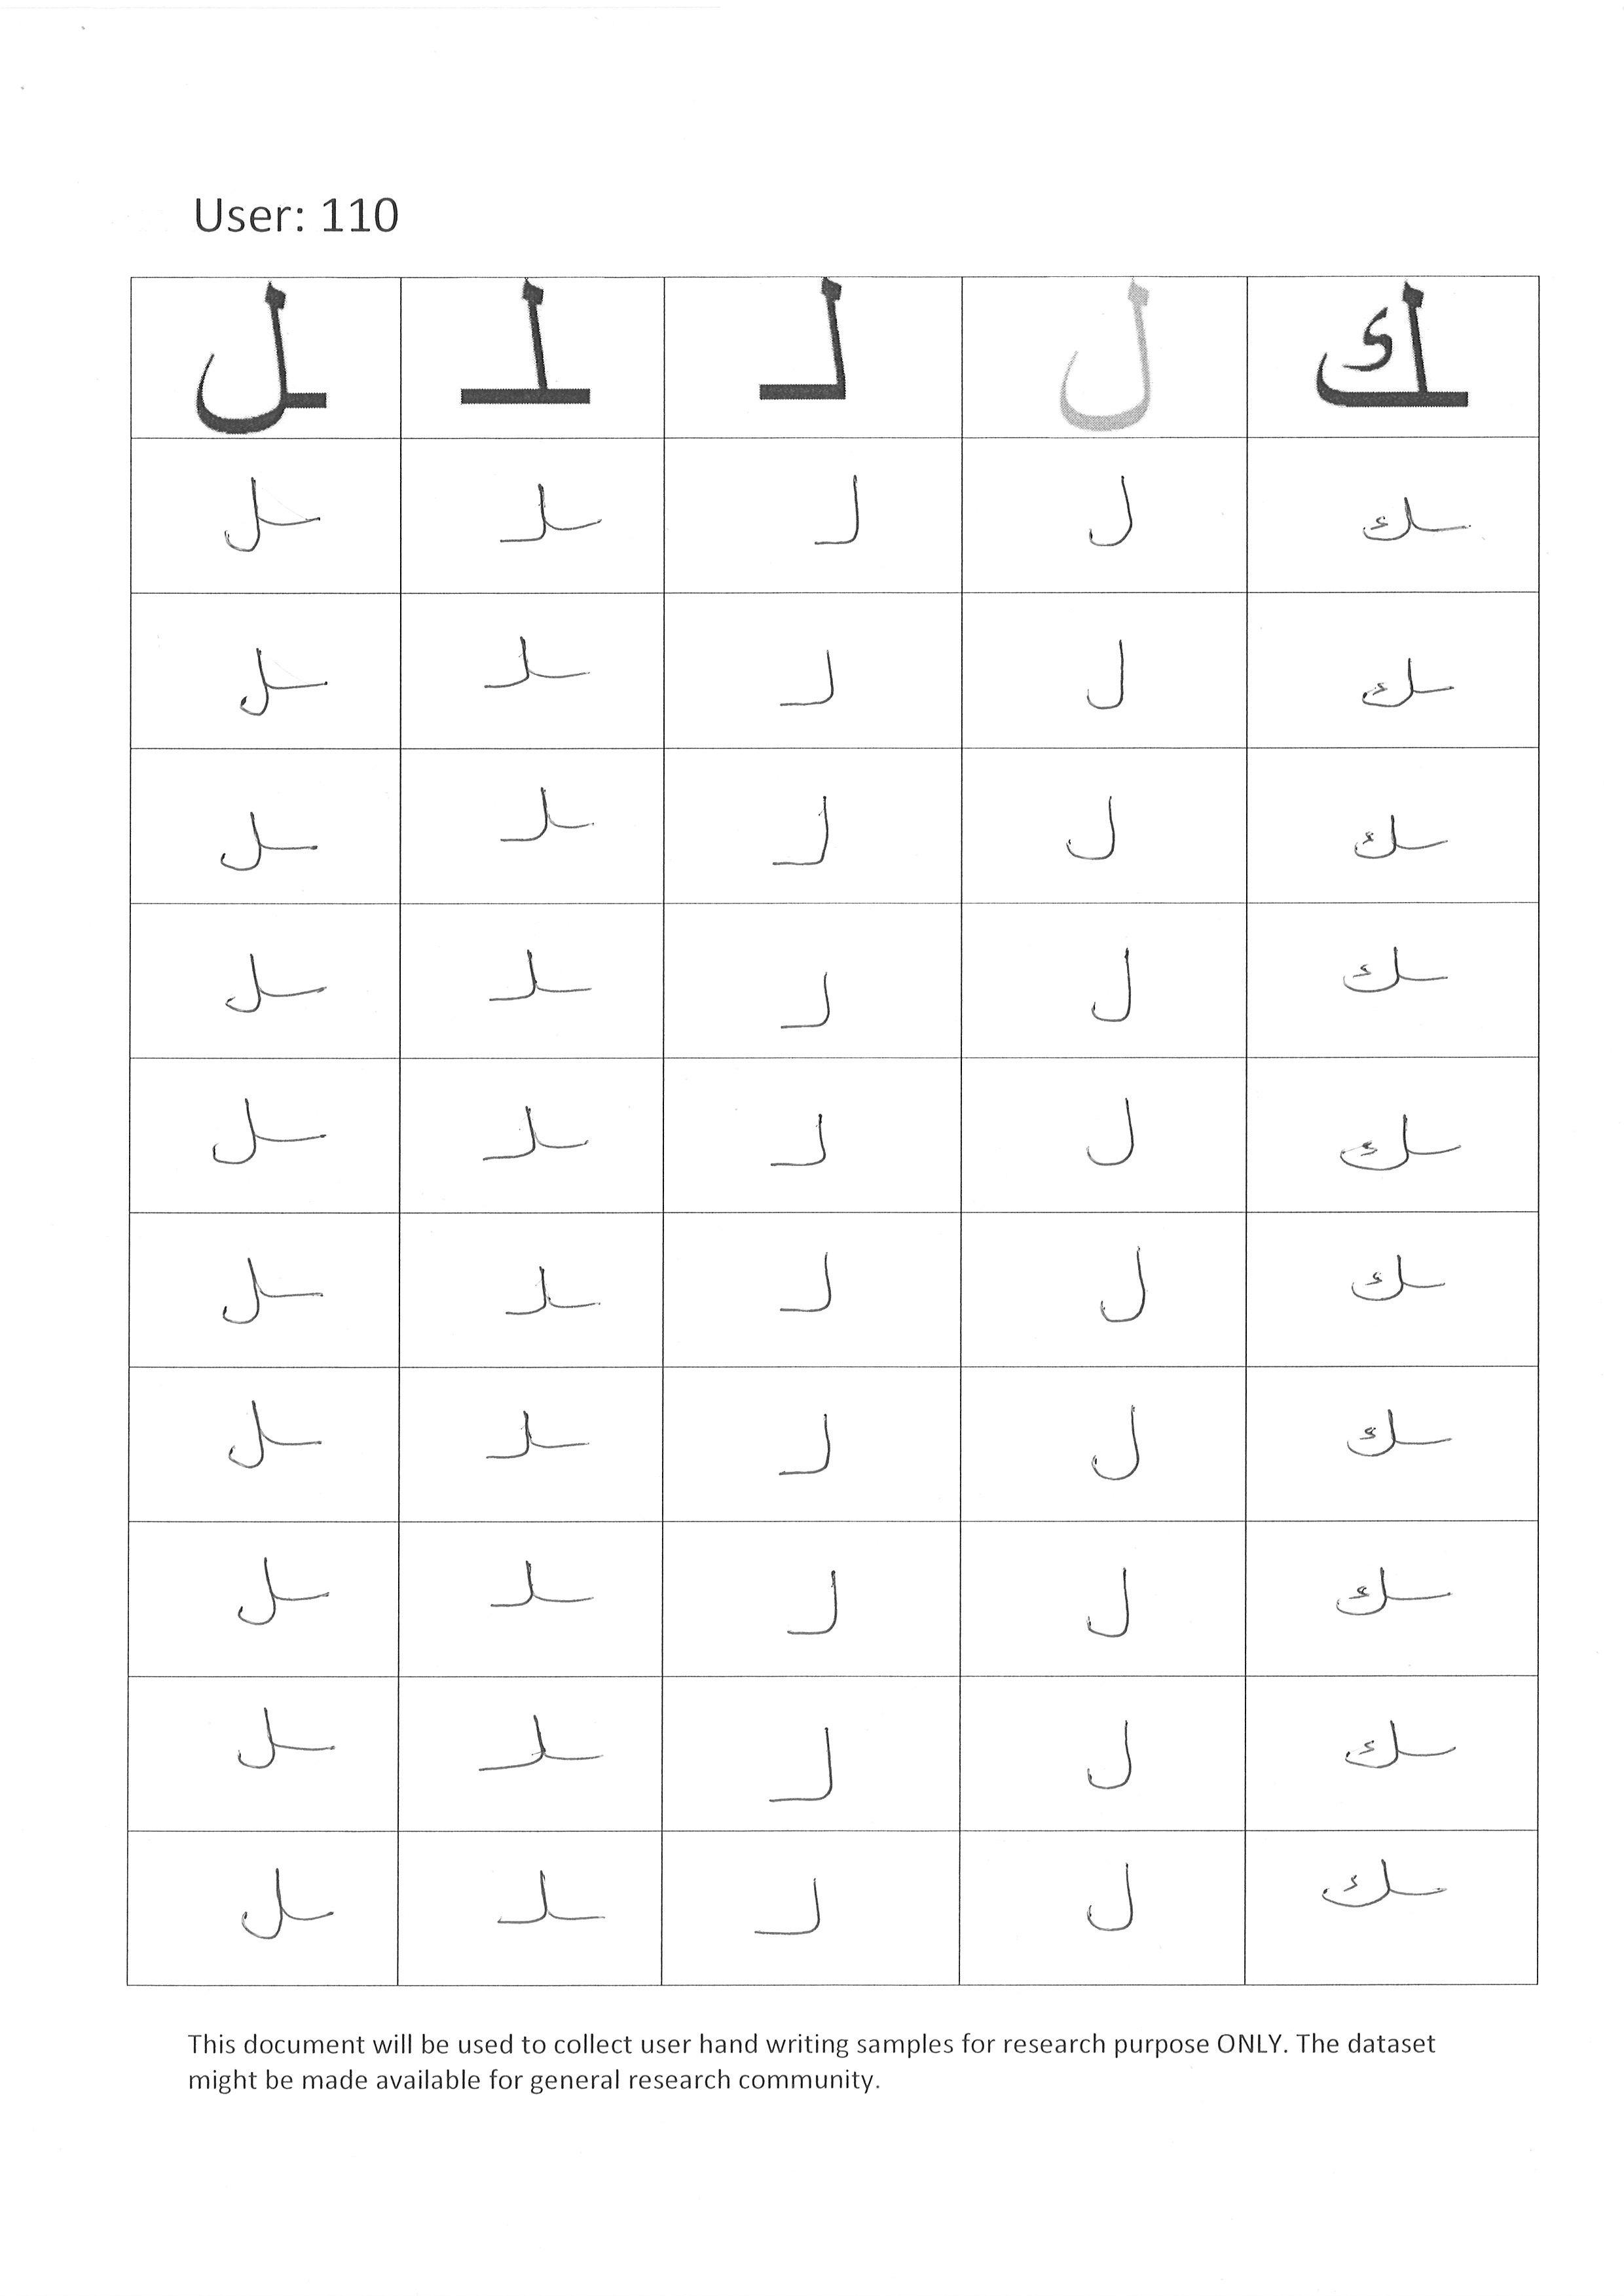 User: 110
ـل ـلـ لـ ل ـك
ـل ـلـ لـ ل ـك
ـل ـلـ لـ ل ـك
ـل ـلـ لـ ل ـك
ـل ـلـ لـ ل ـك
ـل ـلـ لـ ل ـك
ـل ـلـ لـ ل ـك
ـل ـلـ لـ ل ـك
ـل ـلـ لـ ل ـك
ـل ـلـ لـ ل ـك
ـل ـلـ لـ ل ـك
This document will be used to collect user hand writing samples for research purpose ONLY. The dataset
might be made available for general research community.